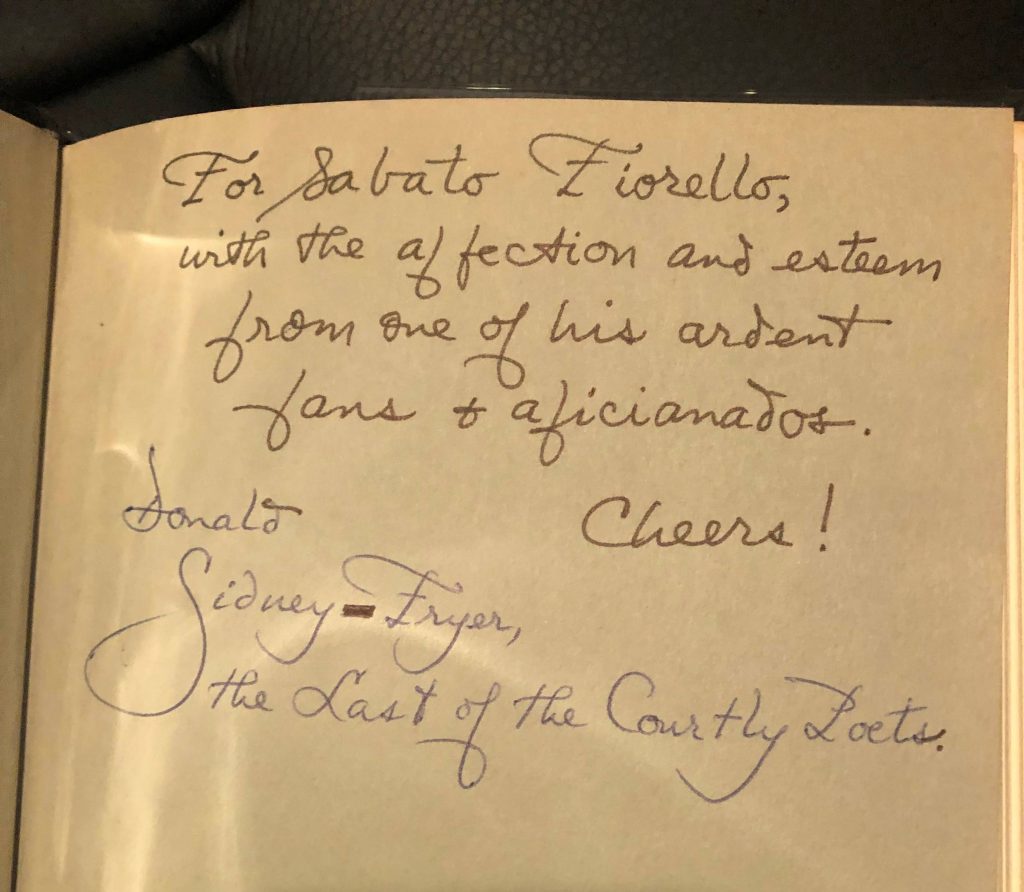 For Sabato Fiorello,
with the affection and esteem
from one of his ardent
fans & aficianados.
Cheers!
Donald
Sidney-Fryer,
the Last of the Courtly Poets.